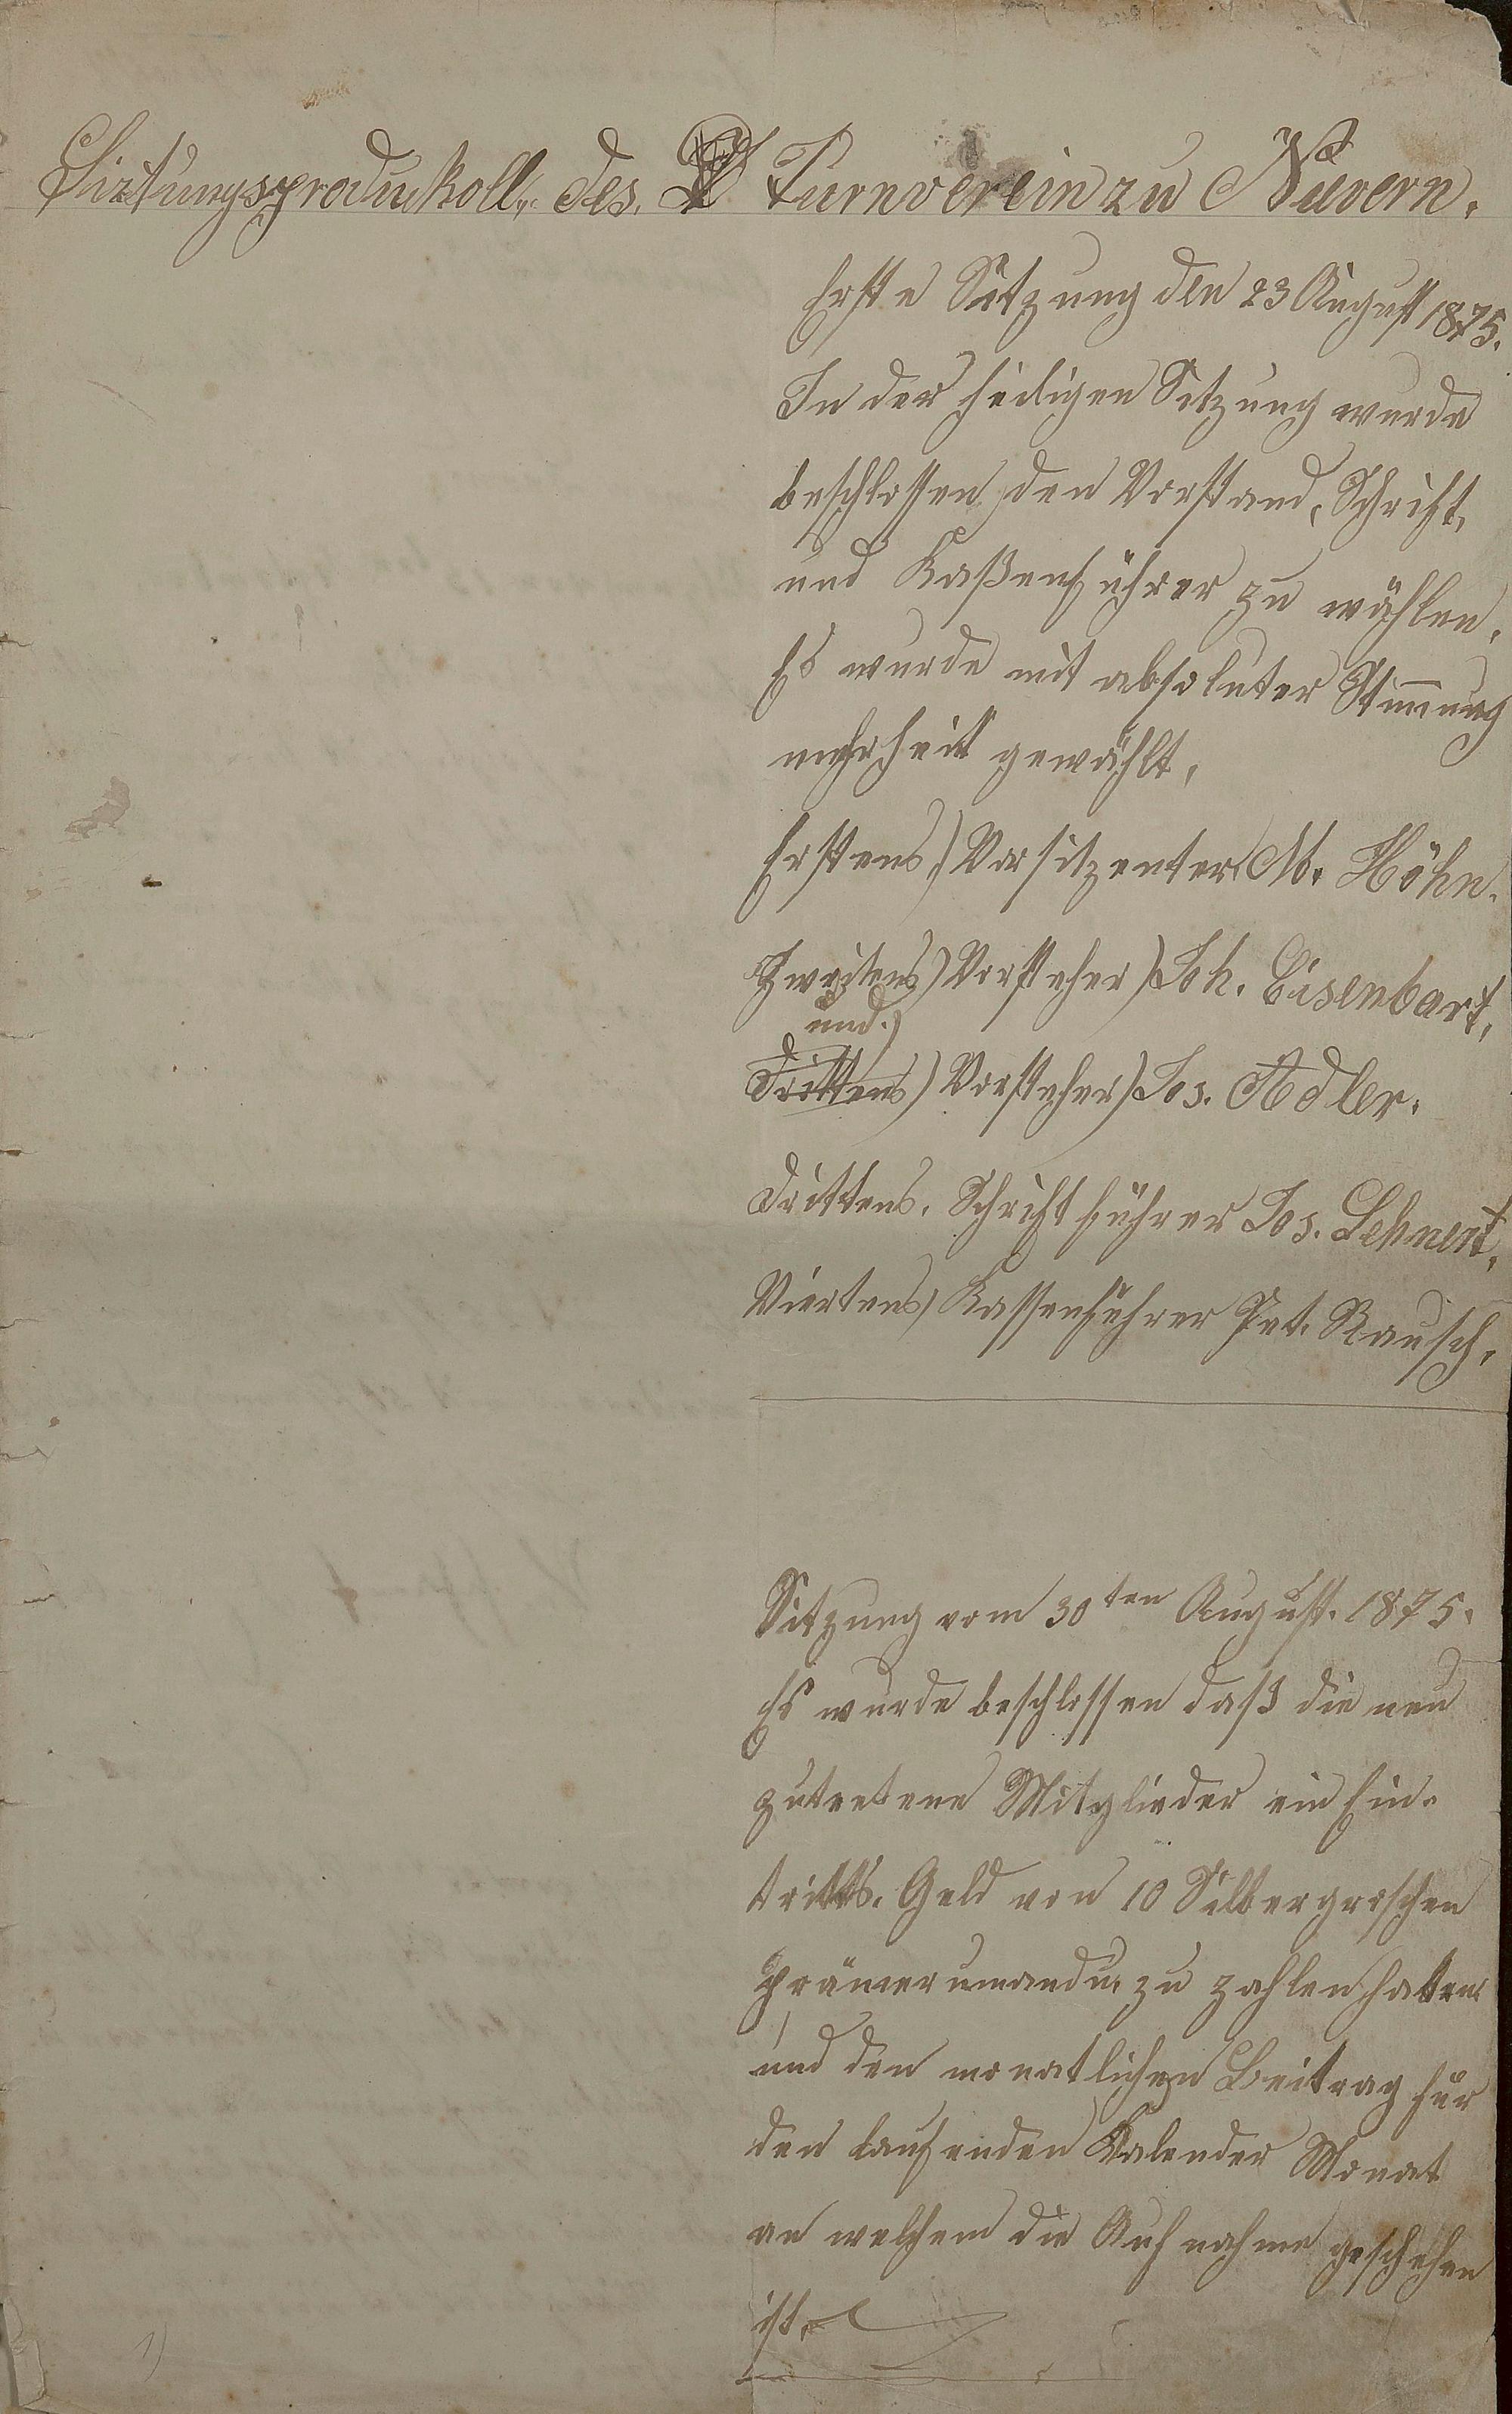 Siztungsprodukoll, des. Turnverein zu Nievern.
Erste Sitzung den 23 August 1875.
In der heiligen Sitzung wurde
beschlossen den Vorstand, Schrift,
und Kaßenführer zu wählen.
Es wurde mit absoluter Stimmung
mehrheit gewählt,
Erstens) Vorsitzenter M. Höhn.
Zweitens) Vorsteher) Joh. Eisenbart,
und.)
Drittens) Vorsteher) Jos. Adler.
Drittens. Schriftführer Jos. Lehnert,
Viertens) Kassenführer Pet. Rausch,
Sitzung vom 30ten August. 1875.
Es wurde beschlossen daß die neu
zutretene Mitglieder ein Ein-
tritts. Geld von 10 Silbergroschen
Pränerumandu. zu zahlen haben
und den monatlichen Beitrag für
den laufenden Kalender Monat
an welchem die Aufnahme geschehen
ist.
1)